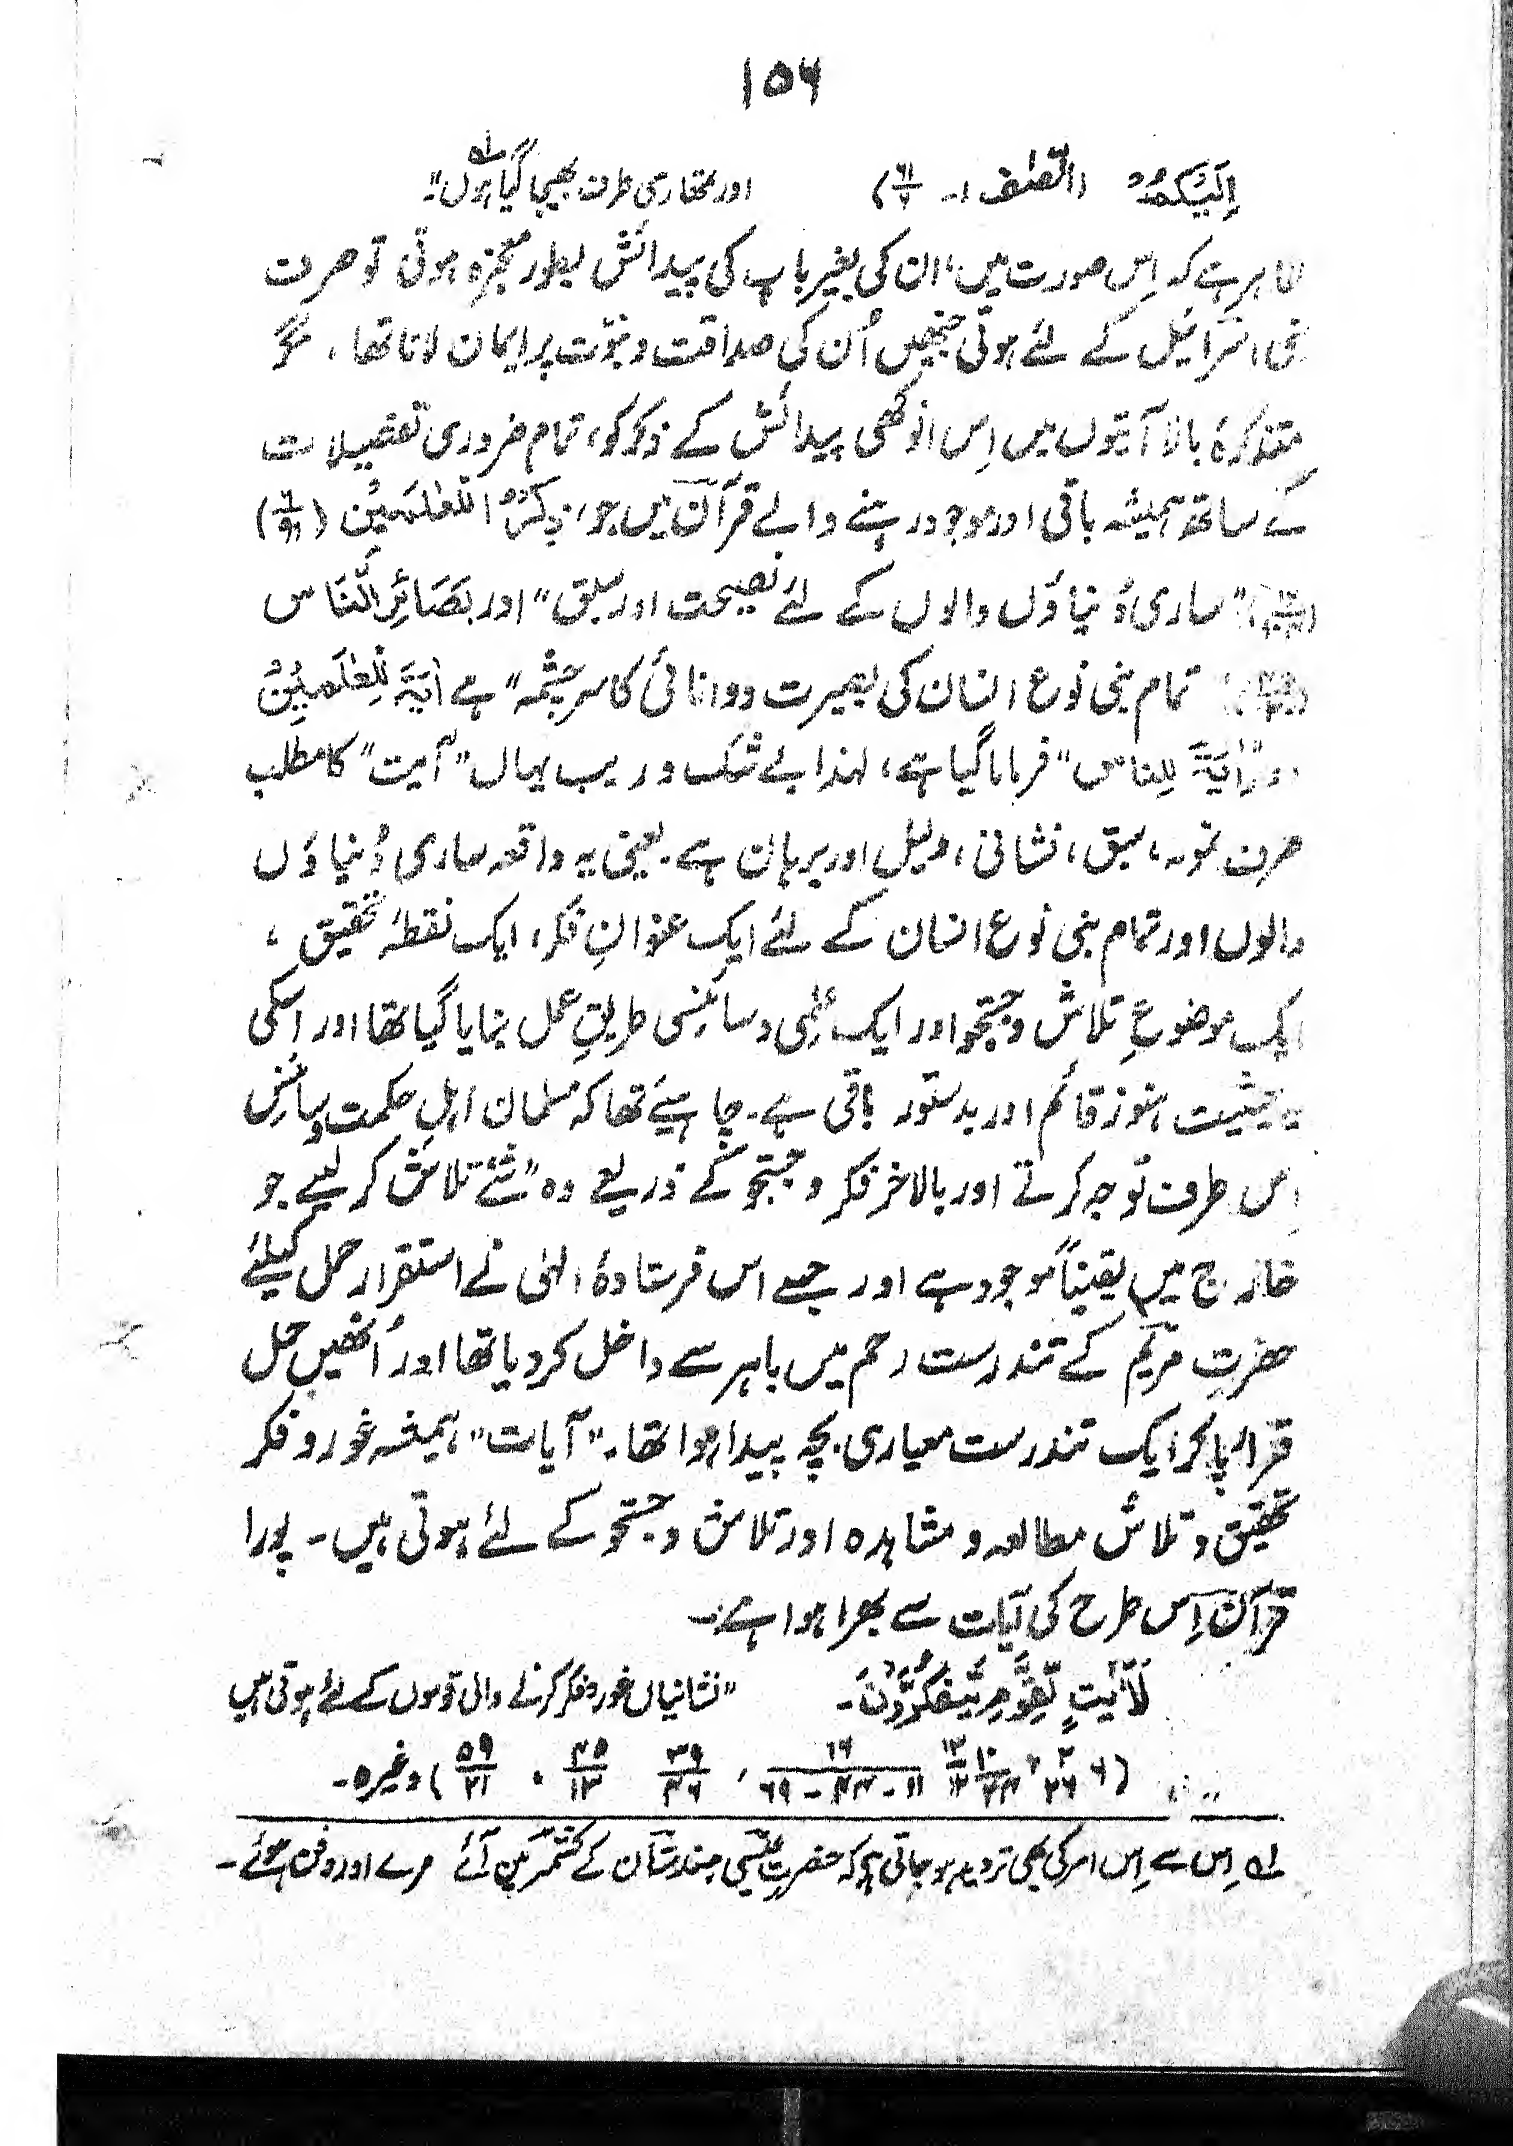 ۱۵۶
اِلَیْکُمْ (الصّف ۔ ۶۱/۶) اور تمھاری طرف بھیجا گیا ہوں"۔ لہ
ظاہر ہے کہ اِس صورت میں، ان کی بغیر باپ کی پیدائش بطور معجزہ ہوتی تو صرف
بنی اسرائیل کے لئے ہوتی جنھیں اُن کی صداقت و نبوّت پر ایمان لانا تھا، مگر
متذکرۂ بالا آیتوں میں اِس انوکھی پیدائش کے ذکر کو، تمام ضروری تفصیلات
کے ساتھ ہمیشہ باقی اور موجود رہنے والے قرآن میں جو، ذِکْرٌ للْعٰلَمِیْن
" ساری دُنیاؤں والوں کے لئے نصیحت اور سبق" اور بَصَائِرِ لِلنَّاس
تمام بنی نوع انسان کی بصیرت ودانائی کا سرچشمہ" ہے اٰیَۃً لِلْعٰلَمِیْنَ
اور "اٰیَۃً لِلناس" فرمایا گیا ہے، لہٰذا بے شک و ریب یہاں "آیت" کا مطلب
صرف نمونہ، سبق، نشانی، دلیل اور برہان ہے۔ یعنی یہ واقعہ ساری دُنیاؤں
والوں اور تمام بنی نوع انسان کے لئے ایک عنوانِ فکر، ایک نقطۂ تحقیق ،
ایک موضوعِ تلاش و جستجو اور ایک علمی و سائنسی طریقِ عمل بنایا گیا تھا اور اسکی
یہ حیثیت ہنوز قائم اور بدستور باقی ہے۔ چاہیئے تھا کہ مسلمان اہلِ حکمت و سائنس
اِس طرف توجہ کرتے اور بالاخر فکر و جستجو کے ذریعے وہ "شئے تلاش کر لیتے جو
خارج میں یقیناً موجود ہے اور جسے اس فرستادۂ الہٰی نے استقرار حمل کیلئے
حضرتِ مریم کے تندرست رحم میں باہر سے داخل کر دیا تھا اور اُنھیں حمل
قرار پا کر ایک تندرست معیاری بچہ پیدا ہوا تھا۔ "آیات" ہمیشہ غور و فکر
تحقیق و تلاش مطالعہ و مشاہدہ اور تلاش و جستجو کے لئے ہوتی ہیں۔ پورا
قرآن اِس طرح کی آیات سے بھرا ہوا ہے:۔
لَاٰیٰتٍ لِّقَوْمٍ یَّتَفَکَّرُوْنَ۔ "نشانیاں غور و فکر کرنے والی قوموں کے لئے ہوتی ہیں
۱۰/۲۴ ۱۳/۳ ۱۶/۱۱-۴۴-۶۹ ، ۳۹/۴۲ ۴۵/۱۳ ، ۵۹/۲۱) وغیرہ۔
لہ اِس سے اِس امر کی بھی تردید ہو جاتی ہے کہ حضرتِ عیسٰی ہندستان کے کشمیر میں آئے مرے اور دفن ہوئے۔